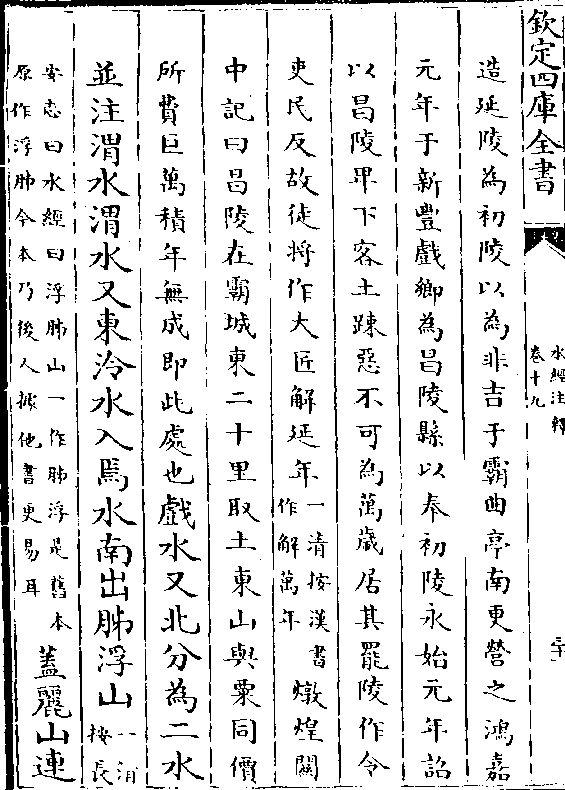 欽定四庫全書
水經注釋
卷十九
造延陵為初陵以為非吉于霸曲亭南更營之鴻嘉
元年于新豐戲鄉為昌陵縣以奉初陵永始元年詔
以昌陵畢下客土疎惡不可為萬歲居其罷陵作令
吏民反故徙將作大匠解延年一清按漢書作解萬年燉煌關
中記曰昌陵在霸城東二十里取土東山與粟同價
所費巨萬積年無成即此處也戲水又北分為二水
並注渭水渭水又東泠水入焉水南出胏浮山一清按長
安志曰水經曰浮胏山一作胏浮是舊本原作浮胏今本乃後人據他書更易耳蓋麗山連